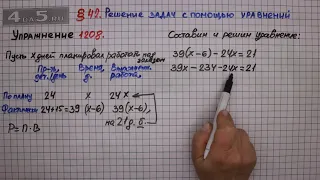 § 42. Решение задач с помощью уравнений
Упражнение 1208.
Пусть х дней планировал работать над
заказом
Пр-ть, дет./день
Время, д.
Выполненная работа,
По плану 24 х 24х
Фактически 24+15=39 (х-6) 39(х-6),
на 21 д. б.
P=П·В
Составим и решим уравнение:
39(х-6)-24х=21
39х-234-24х=21